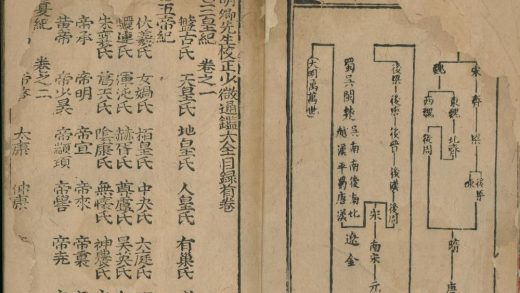 宋 齊 梁 陳
後梁
隋 唐
魏
東魏 北齊
西魏 後周
後梁 後唐 後晉 後漢 後周
宋 南宋 元
遼 金
蜀 吳 閩
吳 南 南 後 南 北
越 漢 平 蜀 唐 漢
大明萬萬世
明卿先生校正少微通鑑大全目録首卷
三皇紀 卷之一
盤古氏 天皇氏 地皇氏 人皇氏 有巢氏
五帝紀
伏羲氏 女媧氏 栢皇氏 中央氏 大庭氏
驪連氏 渾沌氏 赫胥氏 尊盧氏 昊英氏
朱襄氏 葛天氏 陰康氏 無懷氏 神農氏
帝承 帝明 帝宜 帝來 帝裏
黃帝 帝少昊 帝顓頊 帝嚳 帝堯
夏紀 卷之二
太康 仲康